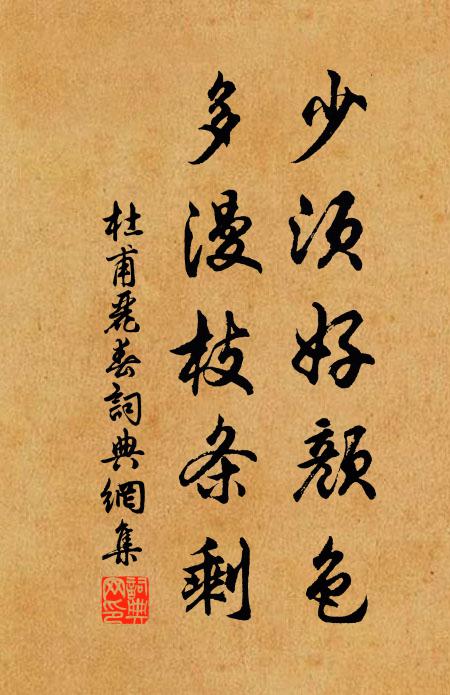 少须好颜色
多漫枝条剩
杜甫麗春詞典網集
詞典网印